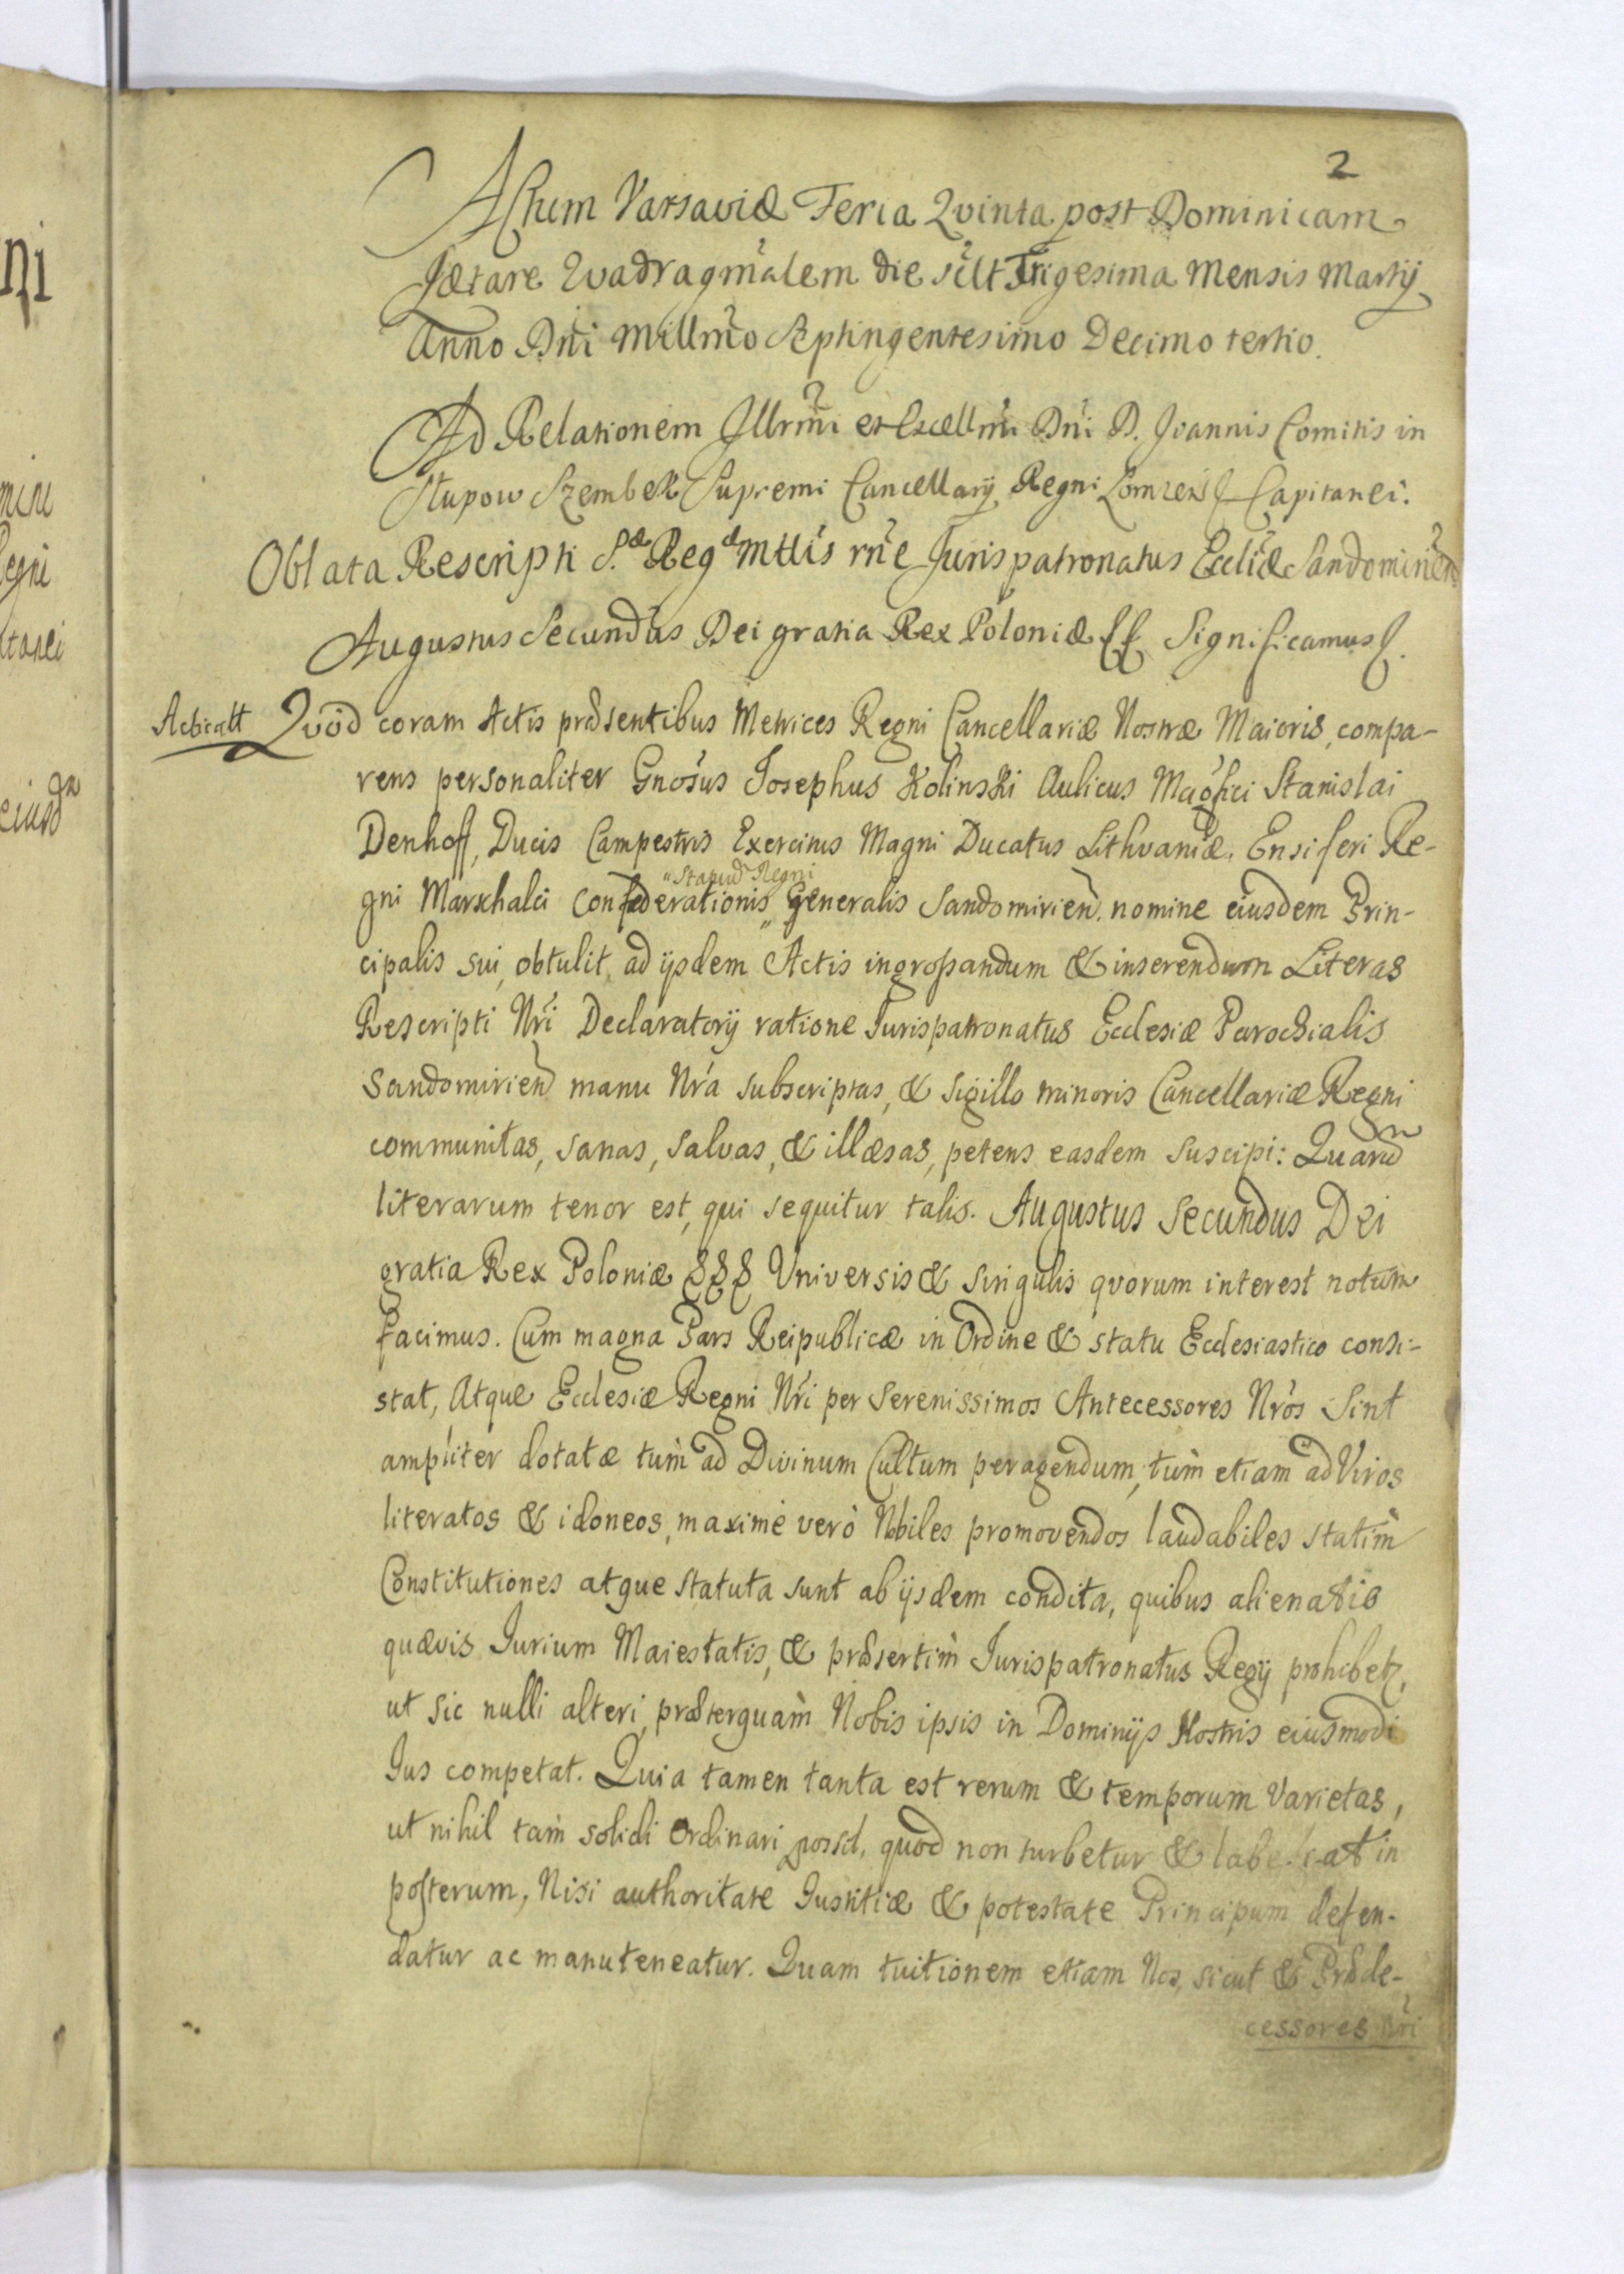 2
Actum Varsaviæ Feria Qvinta post Dominicam
Lætare Qvadragm̃alem die scilt Trigesima Mensis Martij
Anno Dñi Millm̃o Septingentesimo Decimo tertio.
Ad Relationem Illrm̃i et Excellm̃i Dñi D. Joannis Comitis in
Słupow Szembek Supremi Cancellarij Regni Capitanei.
Oblata Rescripti S.æ Regæ Mttis rñe Jurispatronatus Eccliæ Sandomiriẽn
Augustus Secundus Dei gratia Rex Poloniæ Significamus
Qvod coram Actis præsentibus Metrices Regni Cancellariæ Nostræ Maioris, compa-
rens personaliter Gnosus Josephus Kolinski Aulicus Magfici Stanislai
Denhoff, Ducis Campestris Exercitus Magni Ducatus Lithvaniæ, Ensiferi Re-
gni Marschalci Confederationis Generalis Sandomirien. nomine eiusdem Prin-
cipalis sui, obtulit, ad ijsdem Actis ingrossandum & inserendum Literas
Rescripti Nr̃i Declaratorij ratione Jurispatronatus Ecclesiæ Parochialis
Sandomirien manu Nr̃a subscriptas, & sigillo minoris Cancellariæ Regni
communitas, sanas, salvas, & illæsas, petens easdem suscipi: Quarũ
literarum tenor est, qui sequitur talis. Augustus Secundus Dei
gratia Rex Poloniæ &&& Universis & singulis qvorum interest notum
facimus. Cum magna Pars Reipublicæ in Ordine & statu Ecclesiastico consi-
stat, Atque Ecclesiæ Regni Nr̃i per Serenissimos Antecessores Nr̃os sint
ampliter dotatæ tùm ad Divinum Cultum peragendum, tùm etiam ad Viros
literatos & idoneos, maximè verò Nobiles promovendos laudabiles statim
Constitutiones atque statuta sunt ab ijsdem condita, quibus alienatio
quævis Jurium Maiestatis, & præsertim Jurispatronatus Regij prohibetz,
ut sic nulli alteri, præterquàm Nobis ipsis in Dominijs Nostris eiusmodi
Jus competat. Quia tamen tanta est rerum & temporum Varietas,
ut nihil tàm solidi Ordinari possit, quod non turbetur & labescat in
posterum, Nisi authoritate Justitiæ & potestate Principum defen-
datur ac manuteneatur. Quam tuitionem etiam Nos, sicut & Præde-
cessores Nr̃i